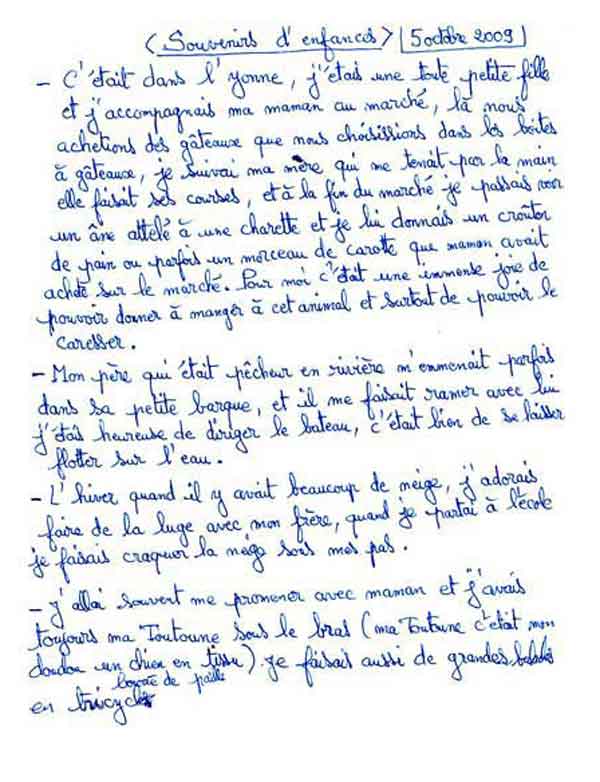 (Souvenirs d'enfances) | 5 octobre 2009 |
- C'était dans l'yonne, j'étais une toute petite fille
et j'accompagnais ma maman au marché, là nous
achetions des gâteaux que nous choisissions dans les boites
à gâteaux, je suivai ma mère qui me tenait par la main
elle faisait ses courses, et à la fin du marché je passais voir
un âne attelé à une charette et je lui donnais un croûton
de pain ou parfois un morceau de carotte que maman avait
acheté sur le marché. Pour moi c'était une immense joie de
pouvoir donner à manger à cet animal et surtout de pouvoir le
caresser.
- Mon père qui était pêcheur en rivière m'emmenait parfois
dans sa petite barque, et il me faisait ramer avec lui
j'étais heureuse de diriger le bateau, c'était bien de se laisser
flotter sur l'eau.
- L'hiver quand il y avait beaucoup de neige, j'adorais
faire de la luge avec mon frère, quand je partai à l'école
je faisais craquer la neige sous mes pas.
- J'allai souvent me promener avec maman et j'avais
toujours ma Toutoune sous le bras (ma Toutoune c'était mon
doudou un chien en tissu). Je faisais aussi de grandes balades
bourré de paille
en tricycle